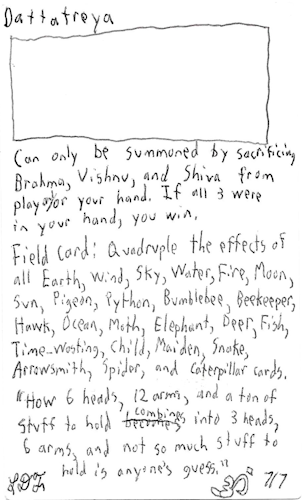 Dattatreya
Can only be summoned by sacrificing
Brahma, Vishnu, and Shiva from
play or your hand. If all 3 were
in your hand, you win.
Field Card: Quadruple the effects of
all Earth, Wind, Sky, Water, Fire, Moon,
Sun, Pigeon, Python, Bumblebee, Beekeeper,
Hawk, Ocean, Moth, Elephant, Deer, Fish,
Time-Wasting, Child, Maiden, Snake,
Arrowsmith, Spider, and Caterpillar cards.
"How 6 heads, 12 arms, and a ton of
stuff to hold combines into 3 heads,
6 arms, and not so much stuff to
hold is anyone's guess."
7/7